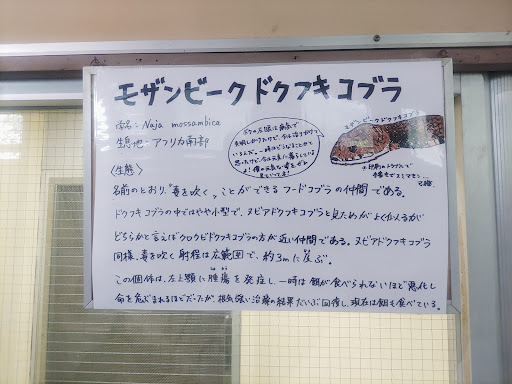 モザンビークドクフキコブラ
学名：Naja mossambica
生息地：アフリカ南部
モザンビークドクフキコブラ
〈生態〉
名前のとおり、"毒を吹く"ことができるフードコブラの仲間である。
ドクフキコブラの中ではやや小型で、ヌビアドクフキコブラと見ためがよく似るが
どちらかと言えばクロクビドクフキコブラの方が近い仲間である。ヌビアドクフキコブラ
同様、毒を吹く射程は広範囲で、約3mに及ぶ。
この個体は、左上顎に腫瘍を発症し、一時は餌が食べられないほど悪化し
命を危ぶまれるほどだったが、根気強い治療の結果だいぶ回復し、現在は餌も食べている。